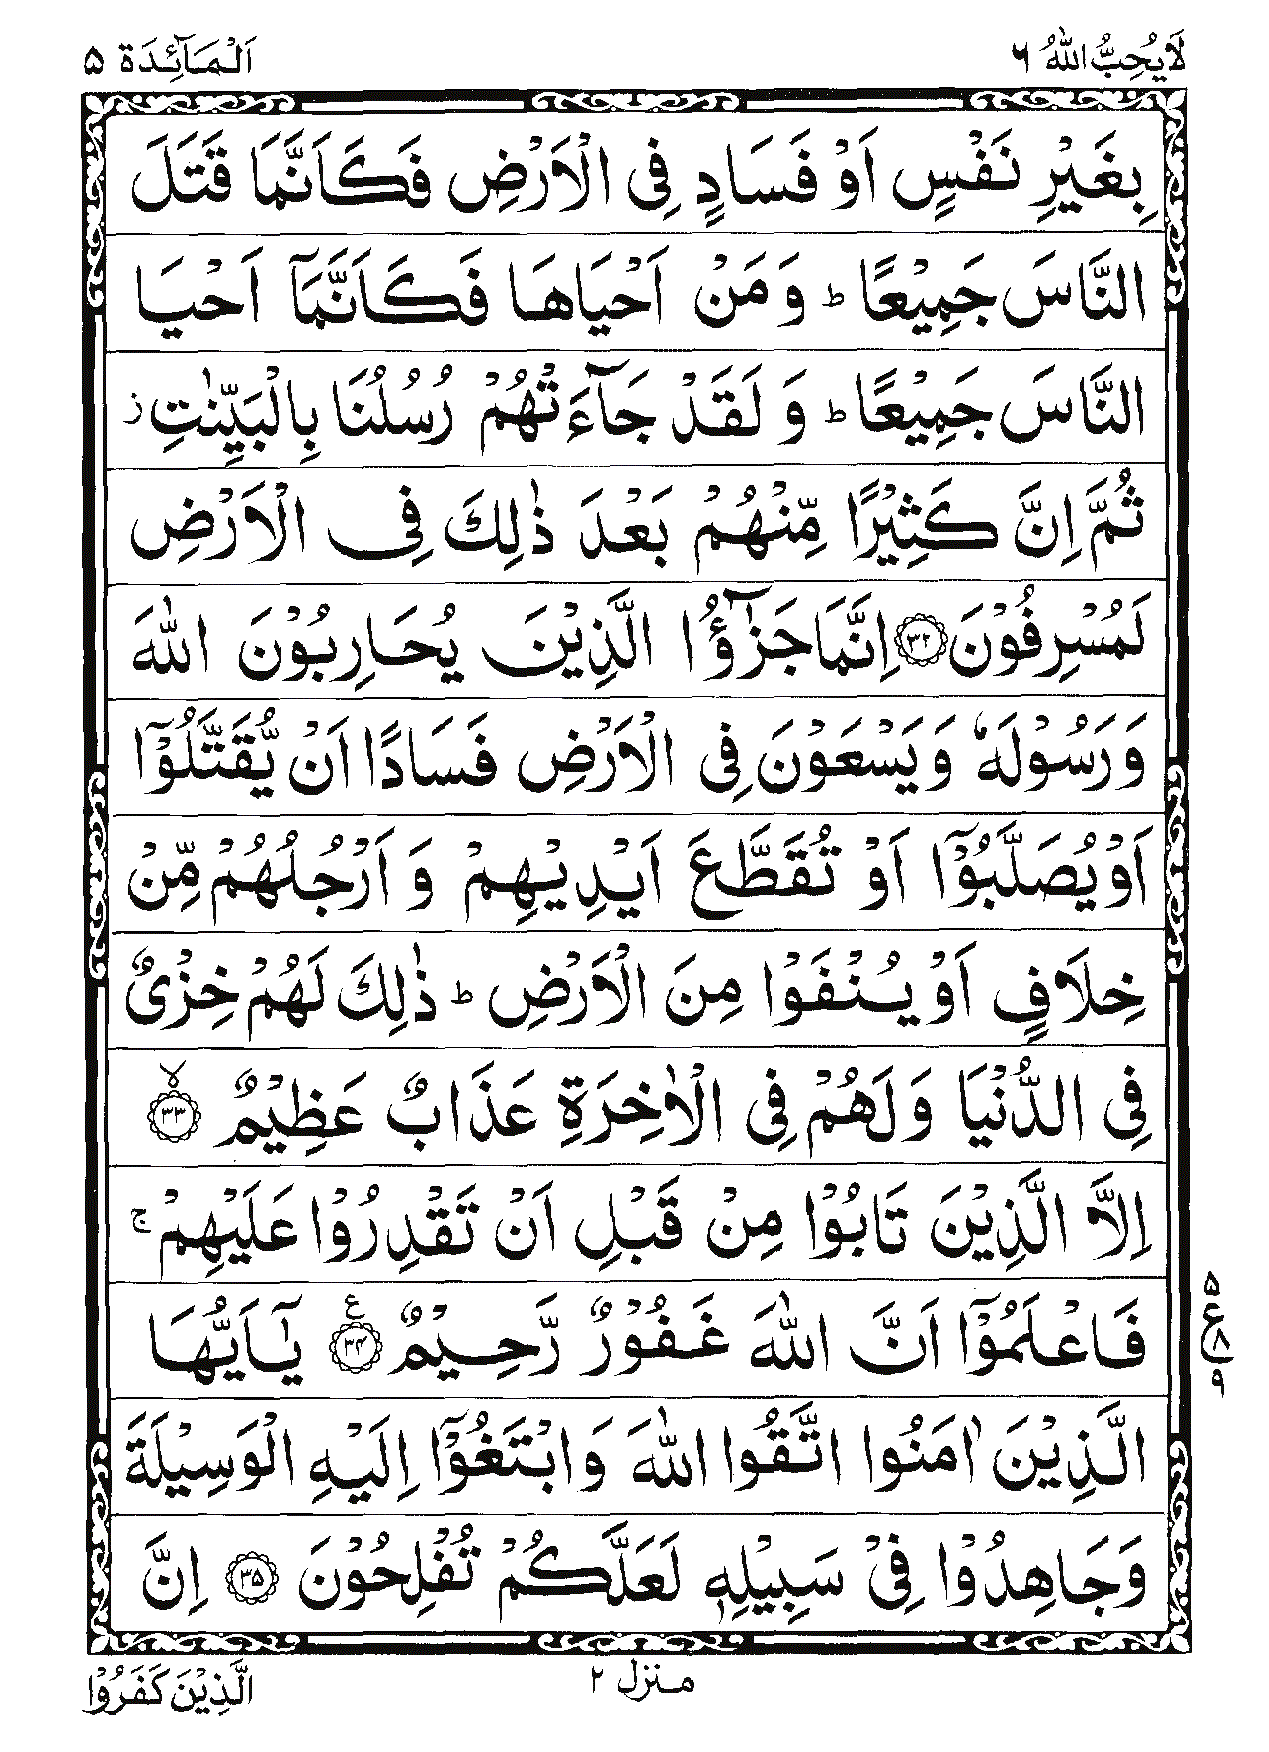 لَا يُحِبُّ اللّٰهُ ٦
اَلْمَآئِدَة ۵
بِغَيْرِ نَفْسٍ اَوْ فَسَادٍ فِى الْاَرْضِ فَكَاَنَّمَا قَتَلَ
النَّاسَ جَمِيْعًا ؕ وَ مَنْ اَحْيَاهَا فَكَاَنَّمَاۤ اَحْيَا
النَّاسَ جَمِيْعًا ؕ وَ لَقَدْ جَآءَتْهُمْ رُسُلُنَا بِالْبَيِّنٰتِ ز
ثُمَّ اِنَّ كَثِيْرًا مِّنْهُمْ بَعْدَ ذٰلِكَ فِى الْاَرْضِ
لَمُسْرِفُوْنَ ﴿۳۲﴾ اِنَّمَا جَزٰٓؤُا الَّذِيْنَ يُحَارِبُوْنَ اللّٰهَ
وَ رَسُوْلَهٗ وَ يَسْعَوْنَ فِى الْاَرْضِ فَسَادًا اَنْ يُّقَتَّلُوْۤا
اَوْ يُصَلَّبُوْۤا اَوْ تُقَطَّعَ اَيْدِيْهِمْ وَ اَرْجُلُهُمْ مِّنْ
خِلَافٍ اَوْ يُنْفَوْا مِنَ الْاَرْضِ ؕ ذٰلِكَ لَهُمْ خِزْىٌ
فِى الدُّنْيَا وَلَهُمْ فِى الْاٰخِرَةِ عَذَابٌ عَظِيْمٌ ﴿۳۳﴾ ۙ
اِلَّا الَّذِيْنَ تَابُوْا مِنْ قَبْلِ اَنْ تَقْدِرُوْا عَلَيْهِمْ ج
فَاعْلَمُوْۤا اَنَّ اللّٰهَ غَفُوْرٌ رَّحِيْمٌ ﴿۳۴﴾ ع يٰۤاَيُّهَا
۵
ع
۸
۹
الَّذِيْنَ اٰمَنُوا اتَّقُوا اللّٰهَ وَ ابْتَغُوْۤا اِلَيْهِ الْوَسِيْلَةَ
وَجَاهِدُوْا فِىْ سَبِيْلِهٖ لَعَلَّكُمْ تُفْلِحُوْنَ ﴿۳۵﴾ اِنَّ
منزل ۲
الَّذِيْنَ كَفَرُوْا